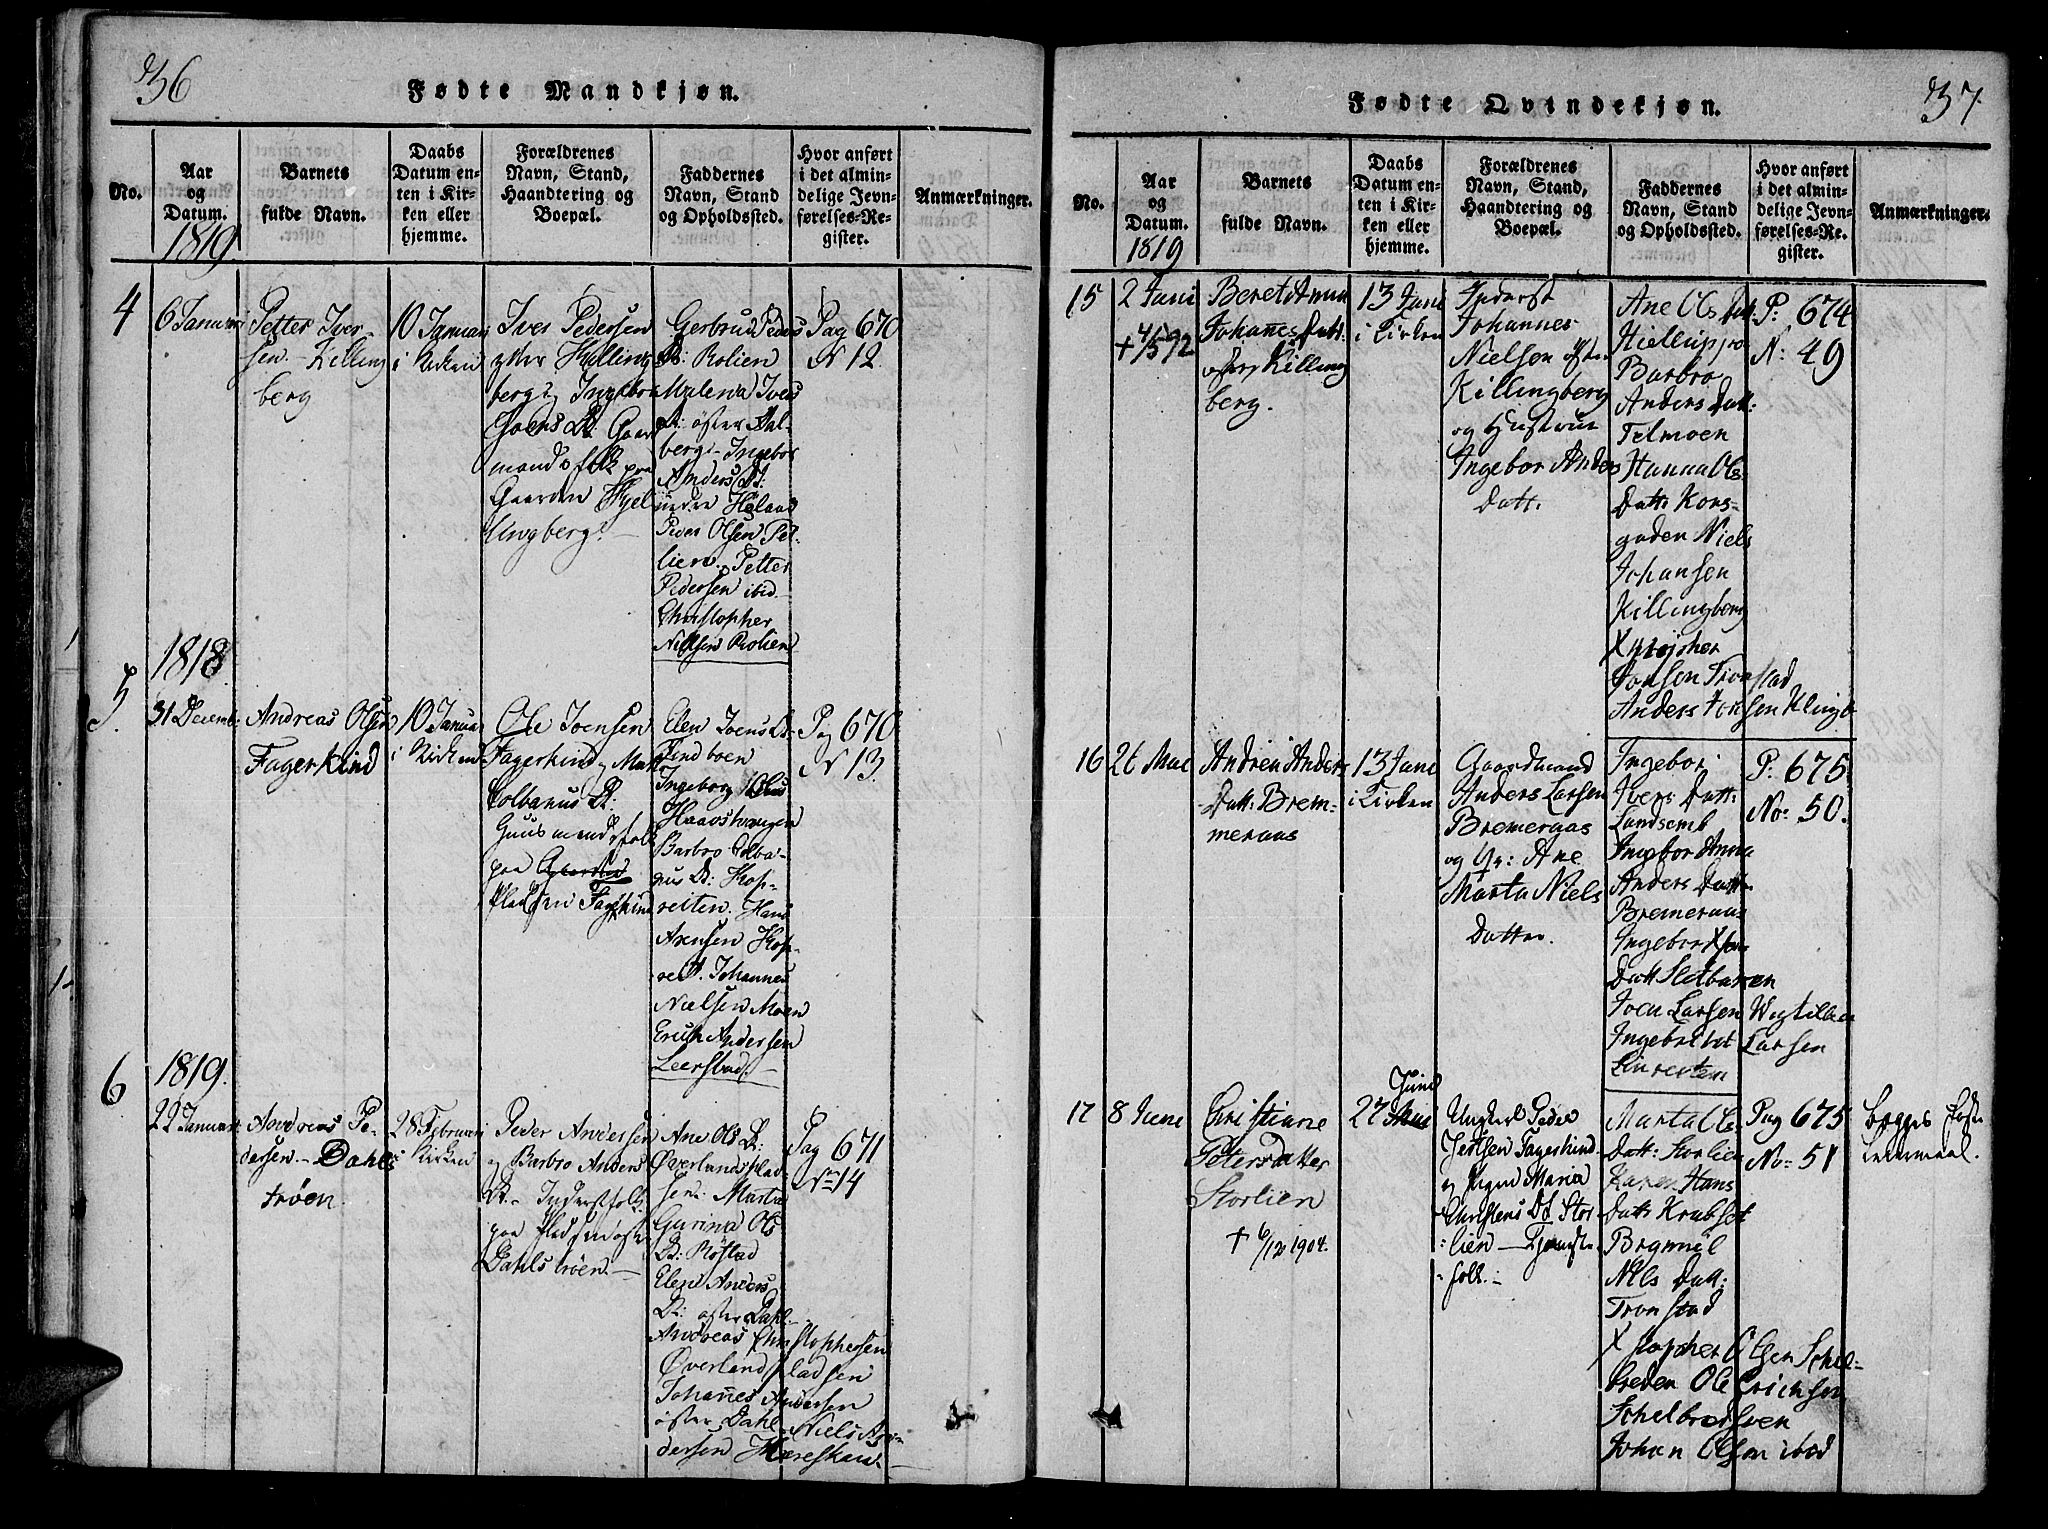 36
Fødte Mandkjøn.
No.
Aar
og
Datum.
1819
Barnets
fulde Navn.
Daabs
Datum en-
ten i Kir-
ken eller
hjemme.
Forældrenes
Navn, Stand,
Haandtering og
Boepæl.
Faddernes
Navn, Stand
og Opholdssted.
Hvor anført
i det almin-
delige Jevn-
førelses-Re-
gister.
Anmærkninger.
4
6 Januari
Petter Iver-
sen - Killing
berg
10 Januari
i Kirken
Iver Pedersen
berg og Ingebor
Joens D: Gaar
mandsfolk paa
Gaarden Kjel
lingberg. -
Gerbrud Peders
D: Rolien
Malena Ivers
D: øster Dal-
berg - Ingebor
Anders D:
under Holaas
Peder Olsen Pet-
lien. Petter
Pedersen ibid. -
Christopher
Nielsen Rolien
Pag 670
N 12
1818.
5.
31 Decemb
Andreas Olsen
Fagerkind
10 Januar
i Kirken
Ole Joensen
Fagerkind og Mart
Colbanus D:
Huusmandsfolk
paa Gaarden
Pladsen Fagerkind
Elen Joens D:
Lindboen
Ingeborg Olus
Haavstvangen
Barbro Colba-
nus D: Kop-
reiten. Hans
Arensen Kop-
reit. Johannes
Nielsen Moen
Erich Andersen
Leerstad. -
Pag 670
N 13.
1819.
6
22 Januari
Andreas Pe-
dersen. - Dahls
trøen.
28 Februari
i Kirken
Peder Andersen
og Barbro Anders
D. - Inderstfolk
paa Pladsen øst
Dahlstrøen. -
Ane Ols D:
Øverlandsplad
sen: Marta
Gurina Ols
D: Røstad
Elen Anders
D: øster Dahl
Andreas Christophersen
Øverlandspladsen
Johanes Andersen
øster Dahl. Niels An-
dersen Hæreskau. -
Pag 671
N 14
37.
Fødte Qvindekjøn.
No.
Aar
og
Datum.
1819
Barnets
fulde Navn.
Daabs
Datum en-
ten i Kir-
ken eller
hjemme.
Forældrenes
Navn, Stand,
Haandtering og
Boepæl.
Faddernes
Navn, Stand
og Opholdssted.
Hvor anført
i det almin-
delige Jevn-
førelses-Re-
gister.
Anmærkninger.
15
2 Juni
+ 4/5 92
Beret Anna
Johanes Datt:
øster Killing
berg.
13 Juni
i Kirken
Inderst
Johannes
Nielsen øster
Killingberg
og Hustrue
Ingebor Anders
Datt.
Ane Ols Dat
Hiellup
Barbro
Anders Datt:
Telmoen
Hanna Ols
Datt: Kors-
gaden Niels
Johansen
Killingberg
Xstopher
Jonsen Tronstad
Anders Jonsen Klingb
P: 674
N: 49
16
26 Mai
Andrea Anders
Datt: Brem-
meraas
13 Juni
i Kirken
Gaardmand
Anders Larsen
Bremeraas
og Qv: Ane
Marta Niels
Datter.
Ingebor
Ivers Datt:
Landsemb
Ingebor Anna
Anders Datt:
Bremeraas
Ingebor
Datt Sletbaken
Joen Larsen Vigtilen
Ingebricht Larsen
P: 675
No: 50.
17
8 Juni
Christiane
Peters Datter
Storlien
+ 6/12 1904.
27 Juni
Ungkarl Peder
Jensen Fagerkind
og Pigen Maria
Christens D: Stor
lien - Tjeneste
folk. -
Marta Ols
Datt: Storlien
Karen Hans
Datt: Krabset
Brynnil
Nils Datt:
Tronstad
Xstopher Olsen Schel-
breden Ole Erichsen
Schelbredsveen
Johan Olsen ibid
Pag 675
No: 51
Begges første
Leiermaal.